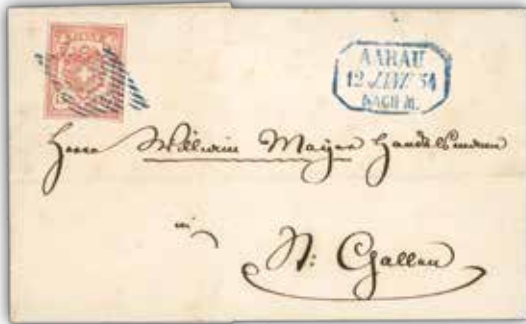 AARAU
12 JANR 54
NACH M.
Herrn Wilwin Mayer Handelsmann
in
St: Gallen